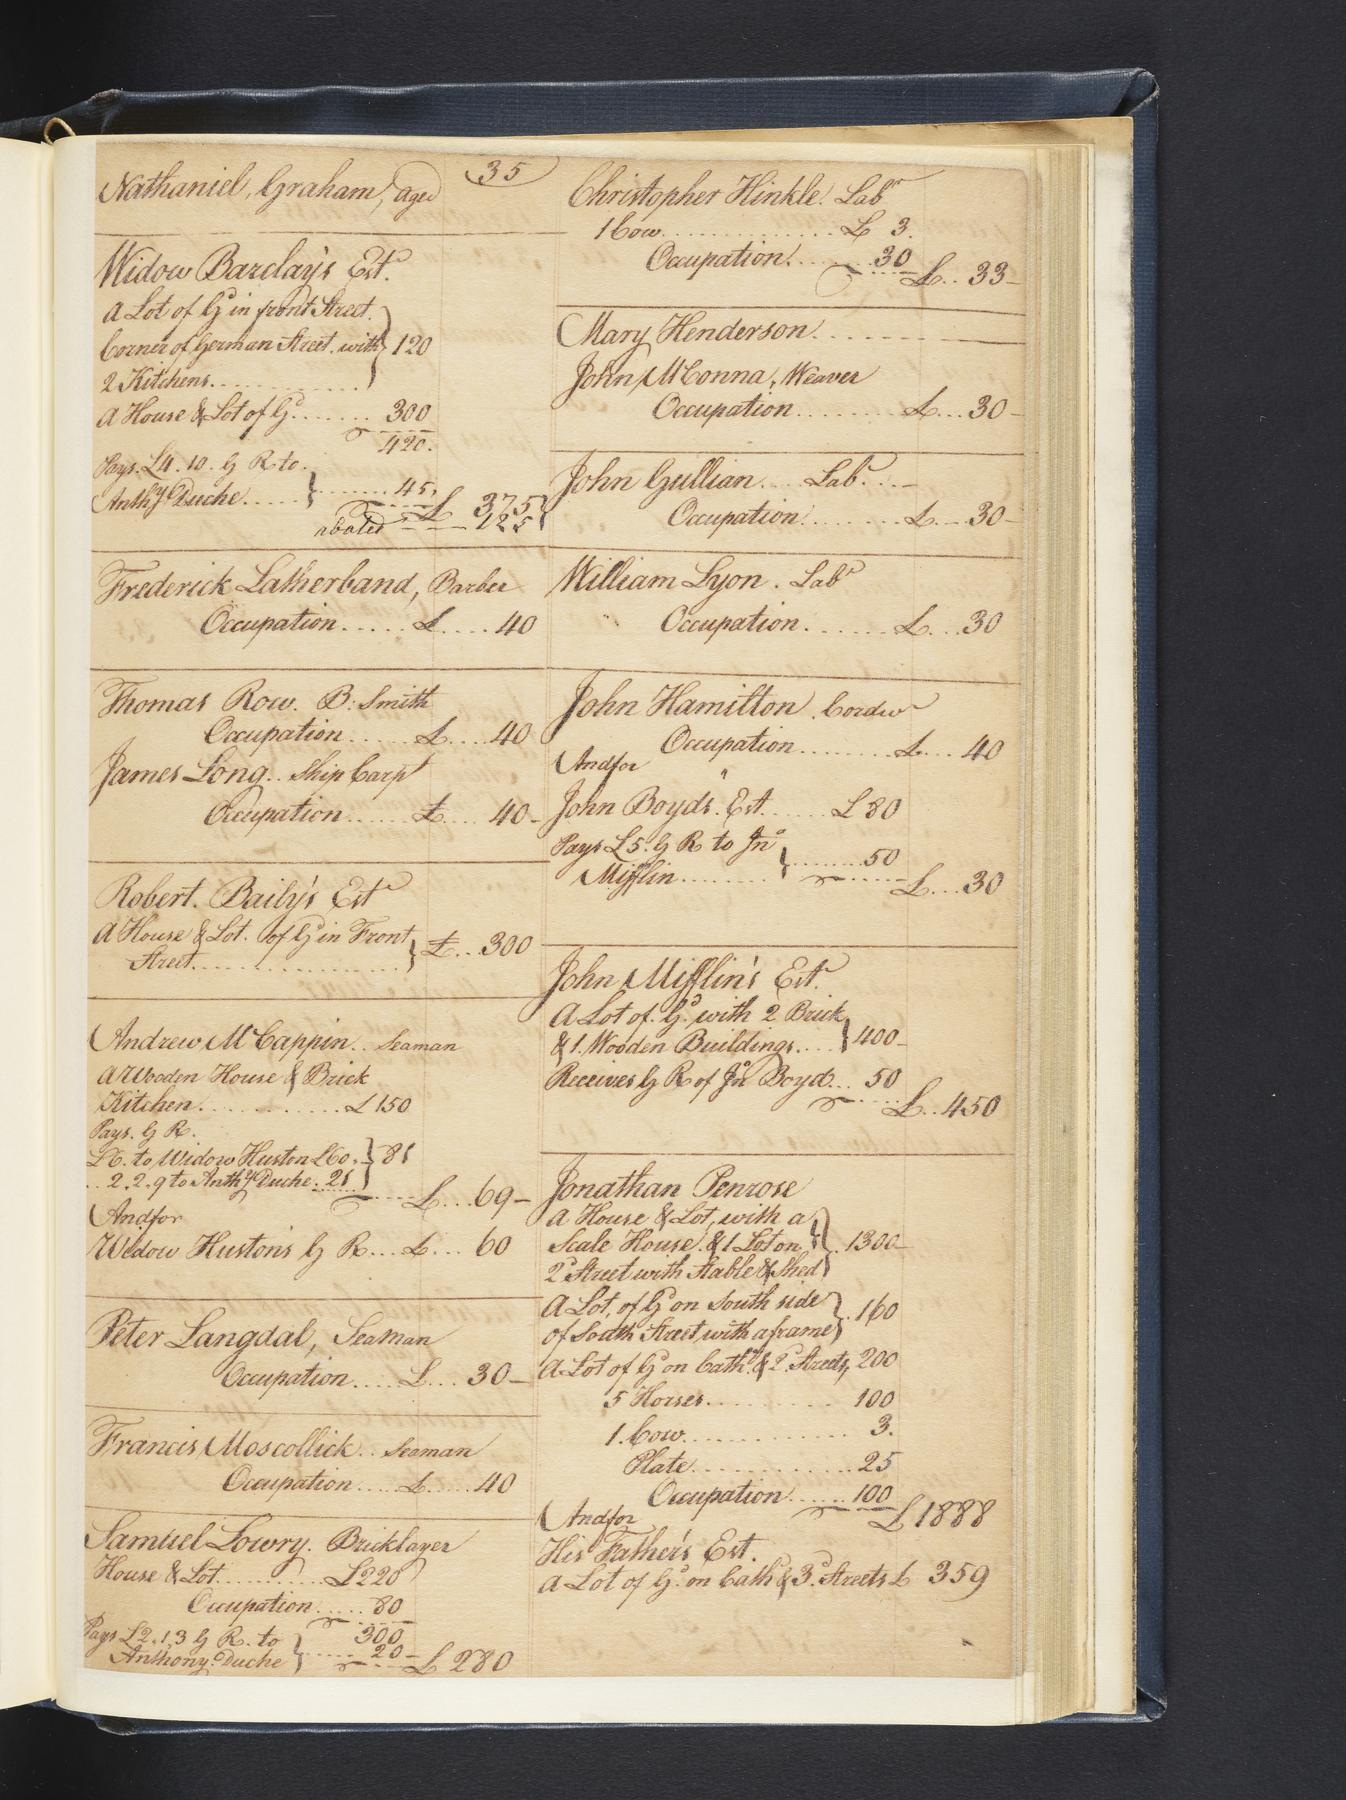 35
Nathaniel Graham, aged
Widow Barclay's Est.
A Lot of Gd in front Street.
Corner of German Street. with } 120
2 Kitchens
A House & Lot of Gd 300
420.
Pays. £4.10. G R to.
Anthy Duche 45
£ 375
abated 125
Frederick Latherband, Barber
Occupation £ 40
Thomas Row. B: Smith
Occupation £ 40
James Long. Ship Carpr
Occupation £ 40
Robert. Baily's Est
A House & Lot. of Gd in Front
Street } £ 300
Andrew McCappin. Seaman
A Wooden House & Brick
Kitchen £150
Pays. G R.
£6. to Widow Huston £60. } 81
2.2.9 to Anthy Duche. 21
£ 69
And for
Widow Huston's G R £ 60
Peter Langdal, Seaman
Occupation £ 30
Francis Moscollick. Seaman
Occupation £ 40
Samuel Lowry. Bricklayer
House & Lot £220
Occupation 80
300
Pays £2.1.3 G R. to
Anthony Duche 20
£ 280
Christopher Hinkle. Labr
1 Cow £ 3.
Occupation 30
£ 33
Mary Henderson
John McConna, Weaver
Occupation £ 30
John Gullian Labr.
Occupation £ 30
William Lyon. Labr
Occupation £ 30
John Hamilton. Cordwr
Occupation £ 40
And for
John Boyds. Est. £80
Pays £5. G R to Jno
Mifflin 50
£ 30
John Mifflin's Est.
A Lot of. Gd. with 2 Brick
& 1. Wooden Buildings } 400
Receives G R of Jno Boyd 50
£ 450
Jonathan Penrose
A House & Lot, with a
Scale House. & 1 Lot on } 1300
2d Street with Stable & Shed
A Lot. of Gd on South side
of South Street with a frame } 160
A Lot of Gd on Cath. & 2d. Streets, 200
5 Horses 100
1. Cow 3.
Plate 25
Occupation 100
£1888
And for
His Father's Est.
A Lot of Gd. on Cath & 3d. Streets £ 359